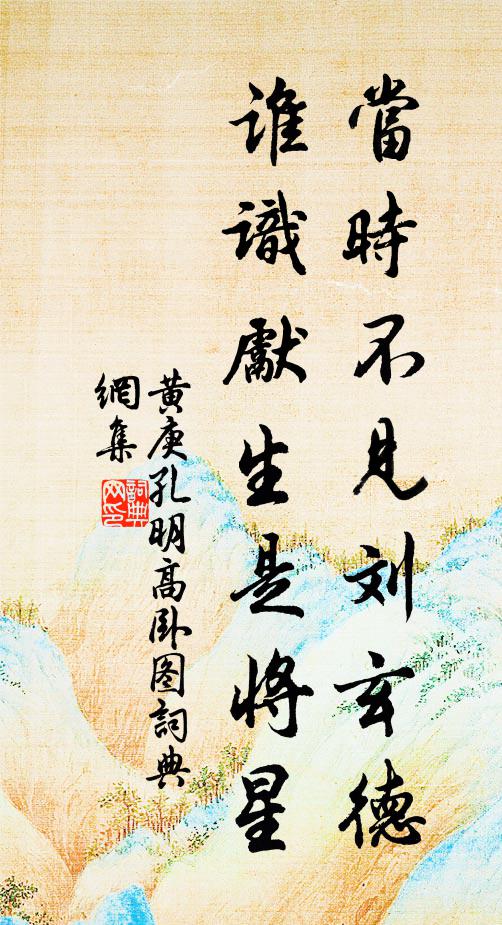 當時不見刘玄德
誰識獻生是將星
黄庚孔明高卧图詞典
網集
詞典
网印